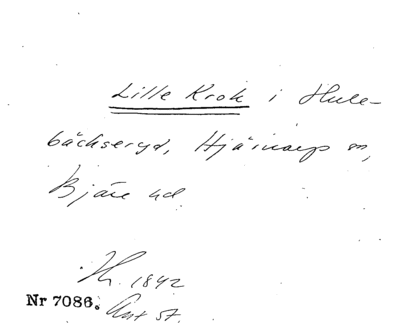 Lille Krok i Hule-
bäckseryd, Hjärnarp sn,
Bjäre hd
H. 1842
Nr 7086. Ant st.